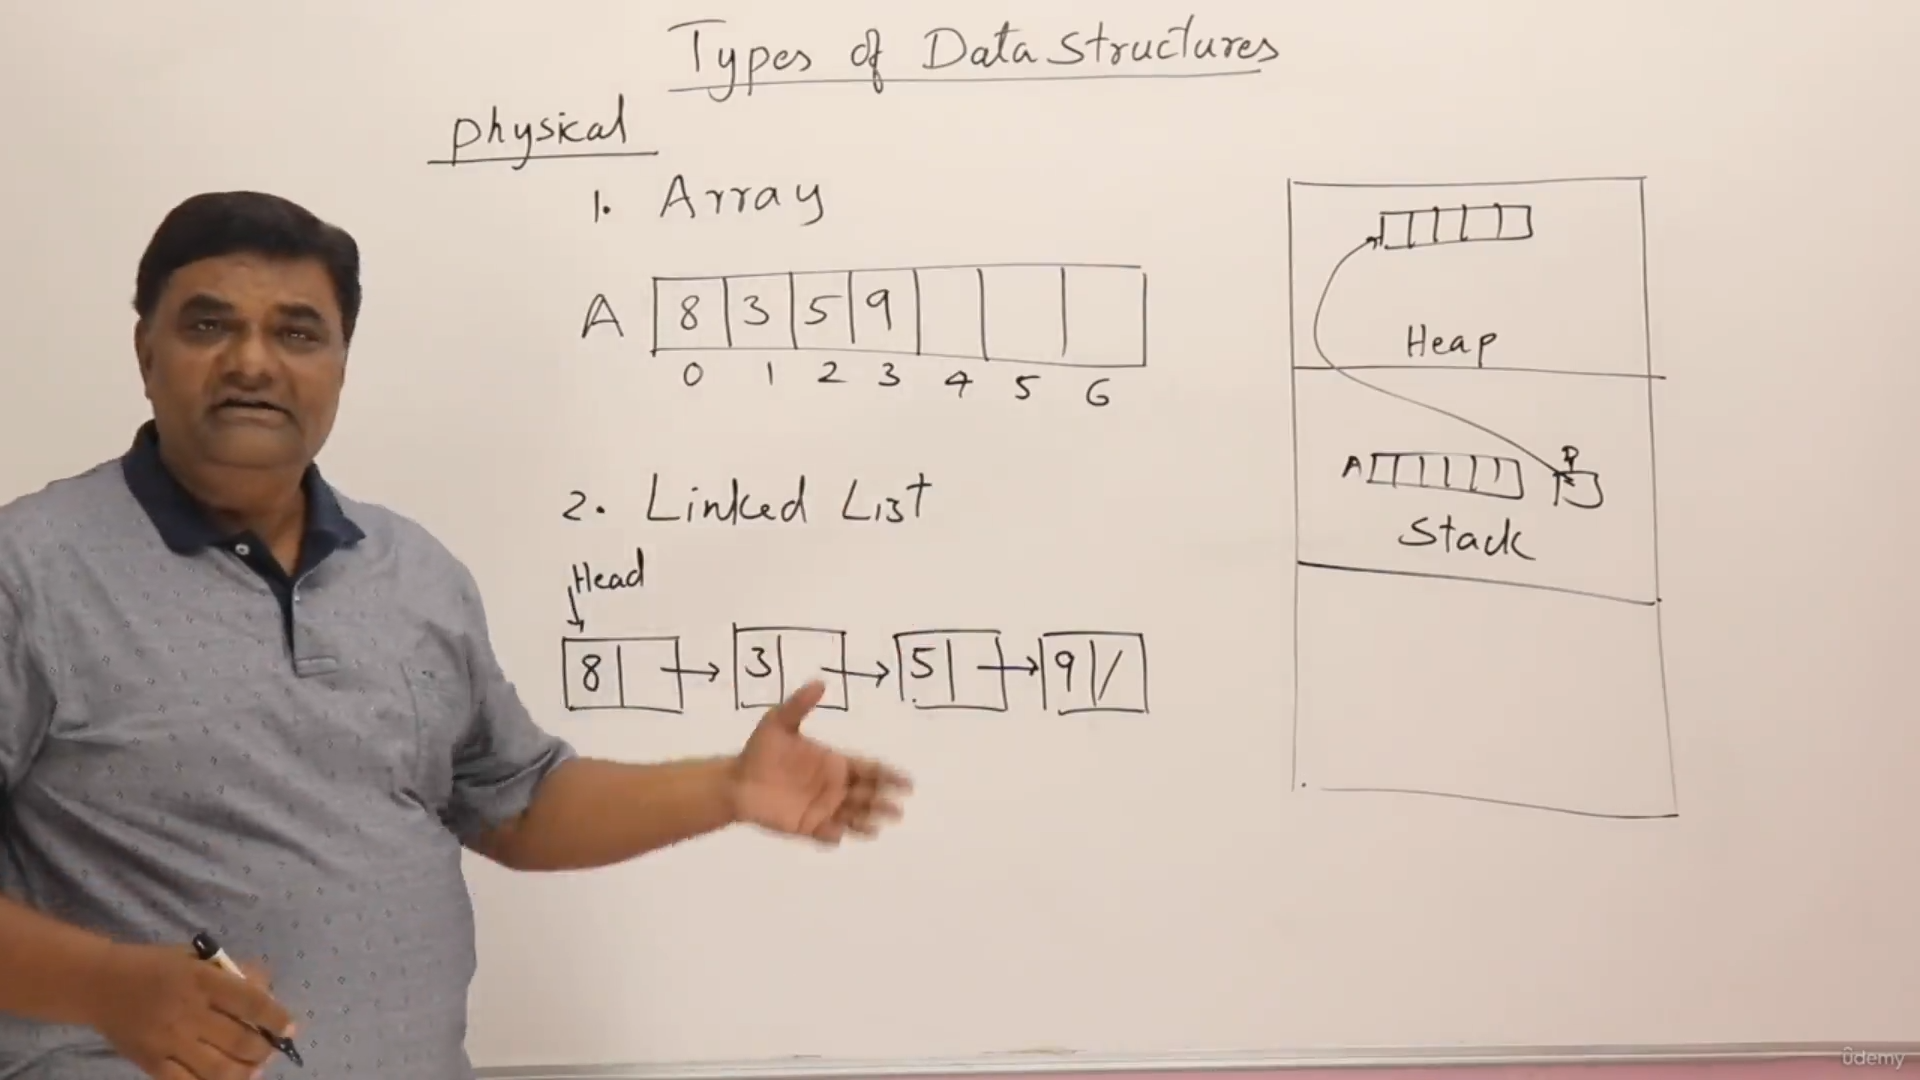 Types of Data Structures
physical
1. Array
A 8 3 5 9
0 1 2 3 4 5 6
2. Linked List
Head
8 3 5 9 /
Heap
A P
Stack
ûdemy